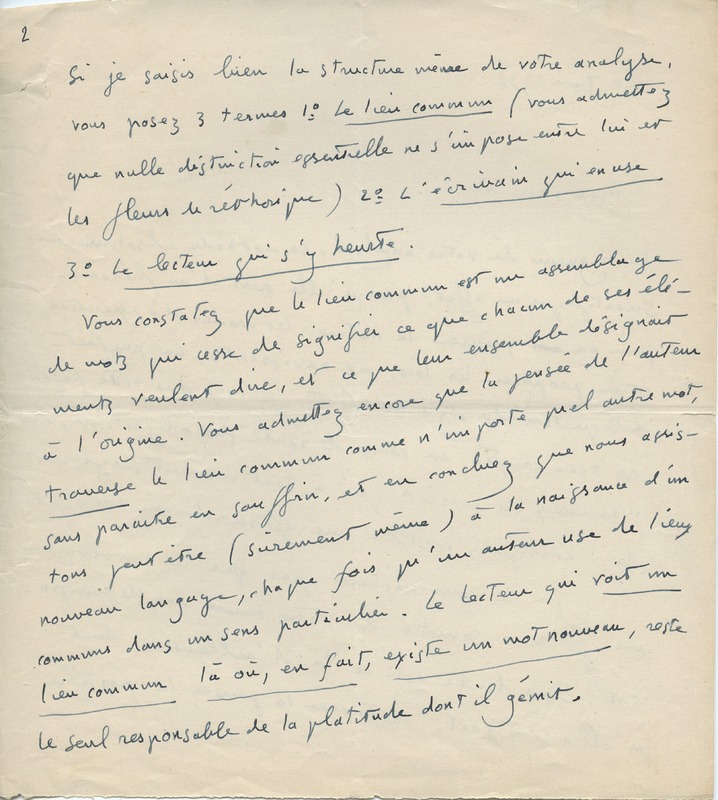 2
Si je saisis bien la structure même de votre analyse,
vous posez 3 termes 1º Le lieu commun (vous admettez
que nulle distinction essentielle ne s'impose entre lui et
les fleurs de réthorique) 2º L'écrivain qui en use
3º Le lecteur qui s'y heurte.
Vous constatez que le lieu commun est un assemblage
de mots qui cesse de signifier ce que chacun de ses élé-
ments veulent dire, et ce que leur ensemble désignait
à l'origine. Vous admettez encore que la pensée de l'auteur
traverse le lieu commun comme n'importe quel autre mot,
sans paraître en souffrir, et en concluez que nous assis-
tons peut être (sûrement même) à la naissance d'un
nouveau langage, chaque fois qu'un auteur use de lieux
communs dans un sens particulier. Le lecteur qui voit un
lieu commun là où, en fait, existe un mot nouveau, reste
le seul responsable de la platitude dont il gémit.